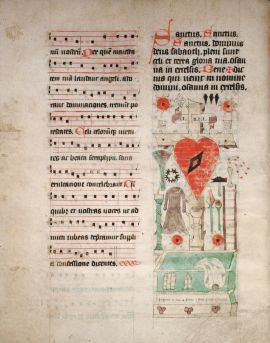 num nostrũ. Per quẽ maiesta
tem tuã laudant angeli. ado
rant dominationes. tremũt po
testates. Celi celorũqz virtu
tes ac beata seraphyn. socia
exultatione concelebrant. Cũ
quibz et nostras voces ut ad
mitti iubeas deprecamur suppli
ci confessione dicentes.
Sanctus. Sanctus.
Sanctus. Dominus
deus sabaoth. pleni sunt
celi et terra gloria tua. osan
na in excelsis. Bene dic
tus qui venit in nomine
domini. osanna in excelsis.